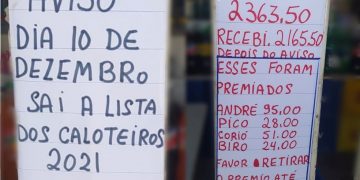 AVISO
DIA 10 DE
DEZEMBRO
SAI A LISTA
DOS CALOTEIROS
2021
2363,50
RECEBI. 2165,50
DEPOIS DO AVISO
ESSES FORAM
PREMIADOS
ANDRÉ 95,00
PICO 28,00
CORIÓ 51,00
BIRO 24,00
FAVOR RETIRAR
O PREMIO ATÉ